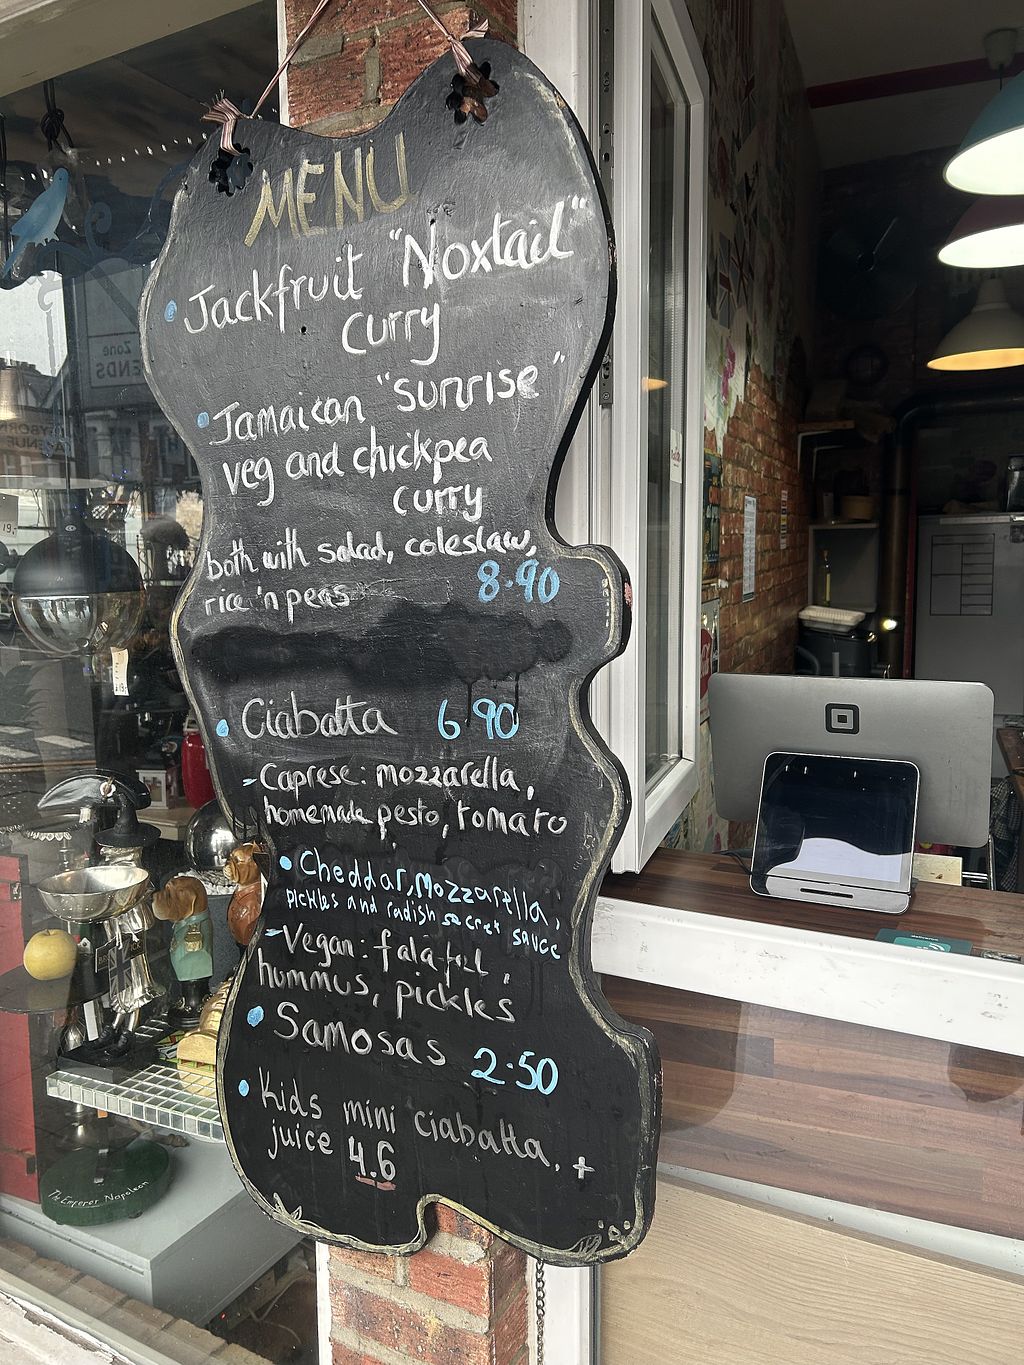 MENU
Jackfruit "Noxtail"
Curry
Jamaican "sunrise"
veg and chickpea
curry
both with salad, coleslaw,
rice 'n peas 8.90
Ciabatta 6.90
- Caprese: mozzarella,
homemade pesto, tomato
Cheddar, Mozzarella,
pickles and radish secret sauce
- Vegan: falafel,
hummus, pickles
Samosas 2.50
Kids mini ciabatta, +
juice 4.6
Zone
ENDS
The Emperor Napoleon